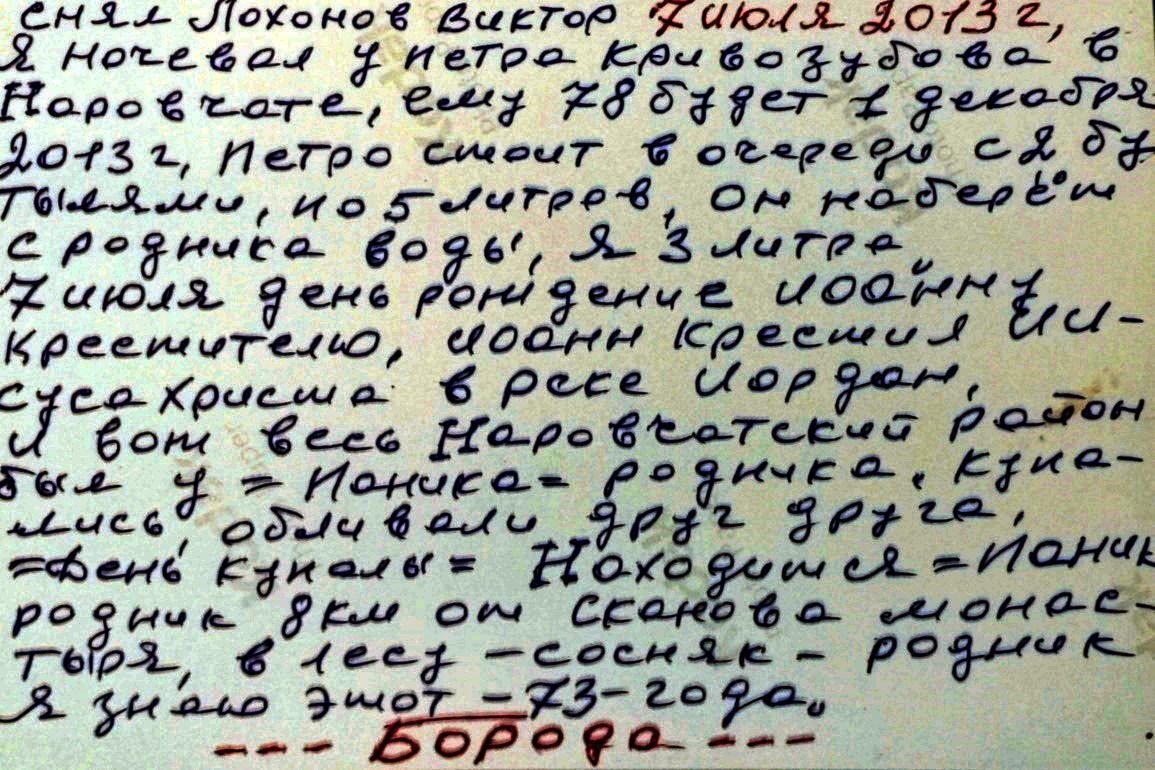 снял Лохонов Виктор 7 июля 2013 г,
я ночевал у петра кривозубова в
Наровчате, ему 78 будет 1 декабря
2013 г, Петро стоит в очереди с 2 бу
тылями, по 5 литров, он наберёт
с родника воды, я 3 литра,
7 июля день рождение иоанну
крестителю, иоанн крестил ИИ-
суса христа в реке Иордан,
и вот весь Наровчатский район
был у =Паника= родника. купа-
лись, обливали друг друга,
=День купалы= Находится =Паник
родник 8 км от сканова монас-
тыря, в лесу - сосняк - родник
я знаю этот - 73 - года.
--- Борода ---